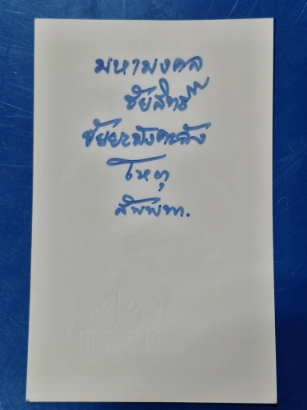 มหามงคล
ชัยสิทธิ์
ชัยยะมังคะลัง
โหตุ
สัพพทา.